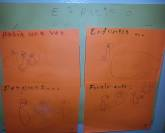 Había una vez
Entonces...
Después...
Finalmente...